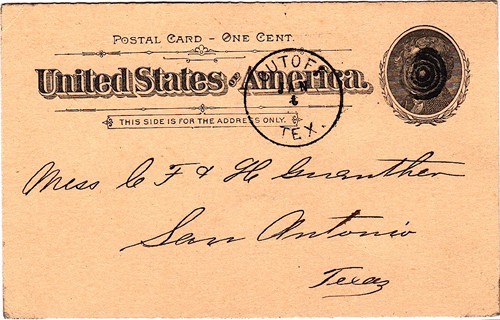 POSTAL CARD - ONE CENT.
United States of America.
THIS SIDE IS FOR THE ADDRESS ONLY.
JAN
TEX.
Mess C F & H Guenther
San Antonio
Texas